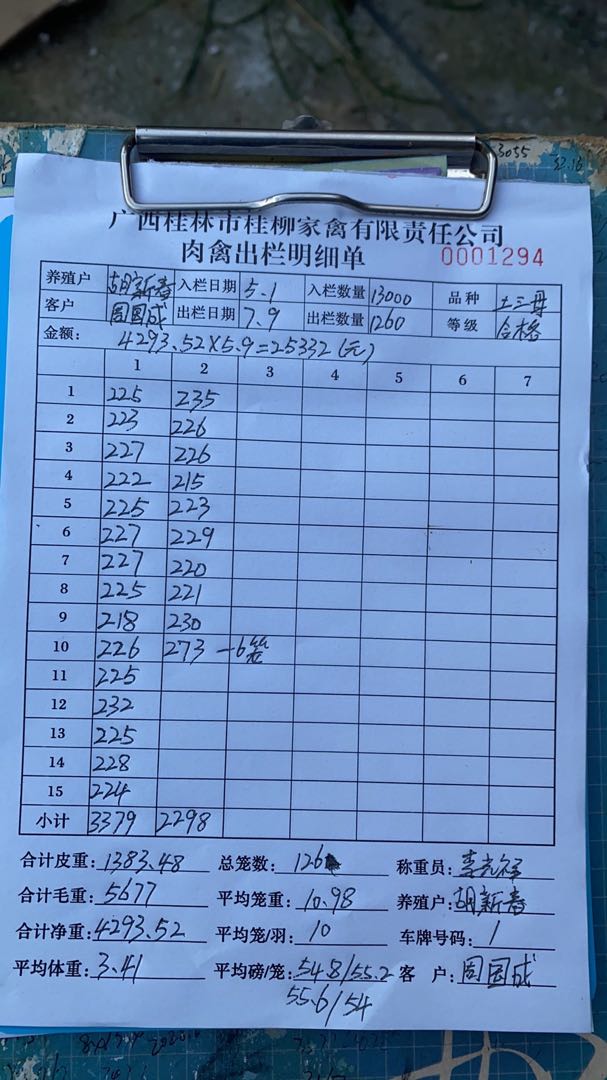 3055
广西桂林市桂柳家禽有限责任公司
肉禽出栏明细单 0001294
养殖户 胡新春 入栏日期 5.1 入栏数量 13000 品种 土三母
客户 周国成 出栏日期 7.9 出栏数量 1260 等级 合格
金额: 4293.52×5.9=25332(元)
1 2 3 4 5 6 7
1 225 235
2 223 226
3 227 226
4 222 215
5 225 223
6 227 229
7 227 220
8 225 221
9 218 230
10 226 273 -6笼
11 225
12 232
13 225
14 228
15 224
小计 3379 2298
合计皮重: 1383.48 总笼数: 126 称重员:
合计毛重: 5677 平均笼重: 10.98 养殖户: 胡新春
合计净重: 4293.52 平均笼/羽: 10 车牌号码: 1
平均体重: 3.41 平均磅/笼: 54.8/55.2 客 户: 周国成
55.6/54